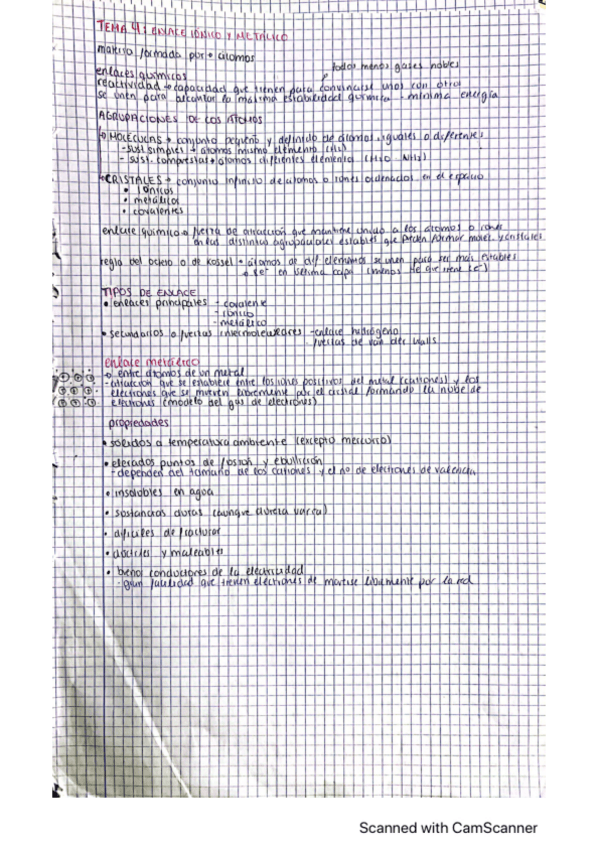 TEMA 4: ENLACE IÓNICO Y METÁLICO
materia formada por → átomos
todos menos gases nobles
enlaces químicos
reactividad → capacidad que tienen para convinarse unos con otros
se unen para alcanzar la máxima estabilidad química - mínima energía
AGRUPACIONES DE LOS ÁTOMOS
MOLÉCULAS → conjunto pequeño y definido de átomos, iguales o diferentes
- sust simples → átomos mismo elemento (H2)
- sust. compuestas → átomos diferentes elementos (H2O NH3)
CRISTALES → conjunto infinito de átomos o iones ordenados en el espacio
• iónicos
• metálicos
• covalentes
enlace químico → fuerza de atracción que mantiene unido a los átomos o iones
en las distintas agrupaciones estables que pueden formar molec. y cristales
regla del octeto o de Kossel → átomos de dif elementos se unen para ser más estables
8e- en última capa (menos He que tiene 2e-)
TIPOS DE ENLACE
• enlaces principales - covalente
- iónico
- metálico
• secundarios o fuerzas intermoleculares - enlace hidrógeno
fuerzas de van der walls
enlace metálico
entre átomos de un metal
- atracción que se establece entre los iones positivos del metal (cationes) y los
electrones que se mueven libremente por el cristal formando la nube de
electrones (modelo del gas de electrones)
propiedades
• sólidos a temperatura ambiente (excepto mercurio)
• elevados puntos de fusión y ebullición
- dependen del tamaño de los cationes y el no de electrones de valencia
• insolubles en agua
• sustancias duras (aunque dureza varía)
• difíciles de fracturar
• dúctiles y maleables
• benos conductores de la electricidad
- gran facilidad que tienen electrones de moverse libremente por la red
Scanned with CamScanner